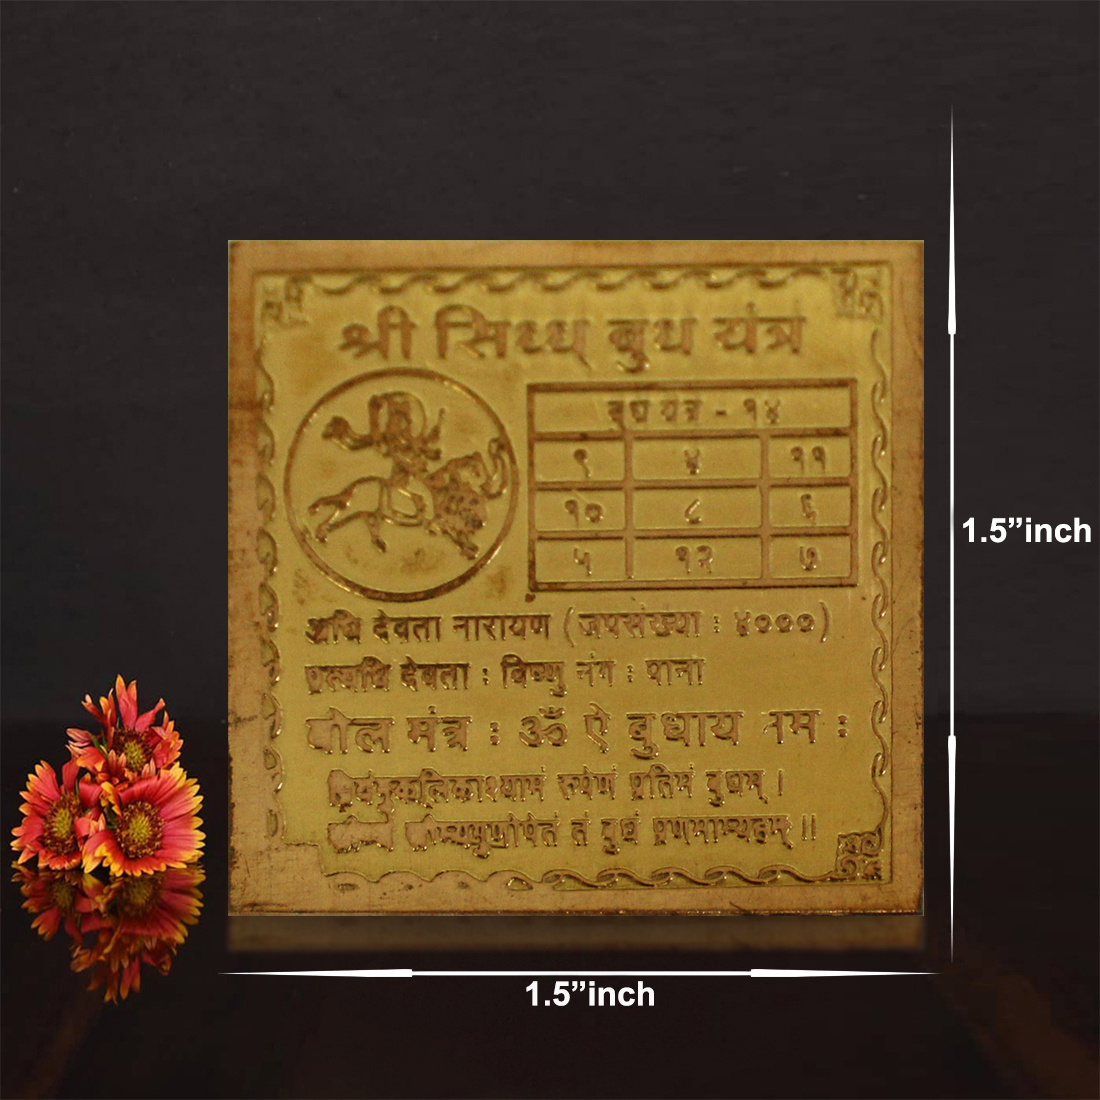 श्री सिध्ध् बुध यंत्र
बुध यंत्र - १४
९ ४ ११
१० ८ ६
५ १२ ७
अधि देवता नारायण (जपसंख्या : ४०००)
प्रत्यधि देवता : विष्णु नंग : पाना
मंत्र : ॐ ऐ बुधाय नम :
रुपेणं प्रतिमं बुधम् ।
तं बुधं प्रणमाम्यहम् ॥
1.5”inch
1.5”inch